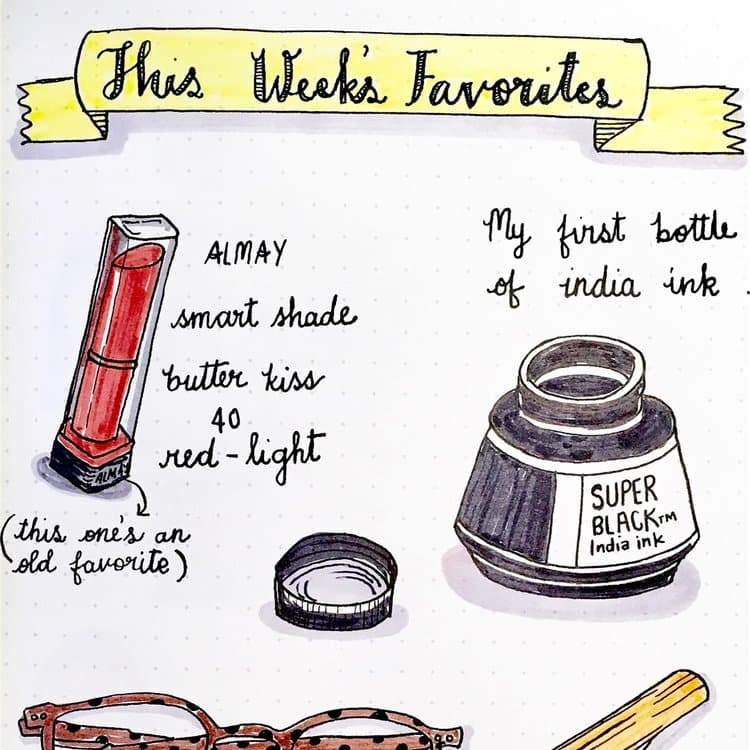 This Week's Favorites
ALMAY
smart shade
butter kiss
40
red-light
ALMA
(this one's an
old favorite)
My first bottle
of india ink.
SUPER
BLACK™
India ink